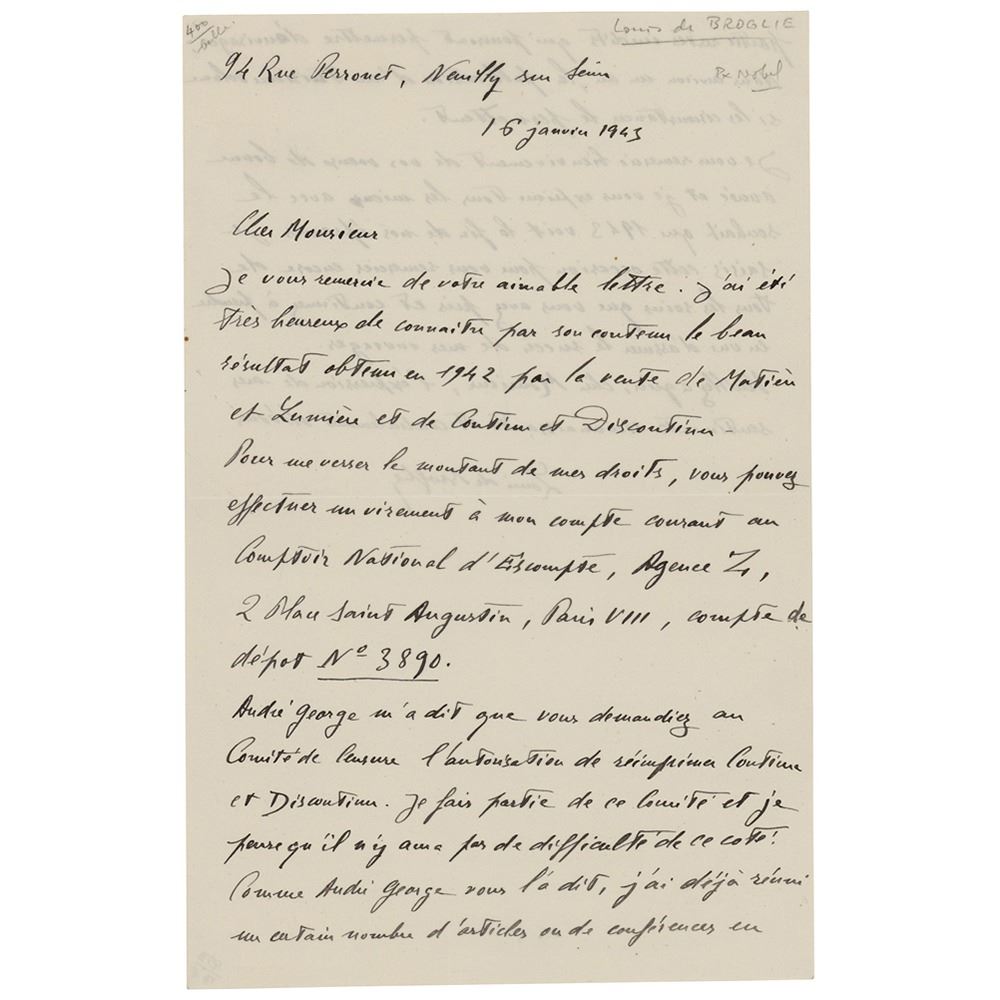 400
Louis de BROGLIE
Px Nobel
94 Rue Perronet, Neuilly sur Seine
16 janvier 1943
Cher Monsieur
Je vous remercie de votre aimable lettre. J'ai été
très heureux de connaitre par son contenu le beau
résultat obtenu en 1942 par la vente de Matière
et Lumière et de Continu et Discontinu.
Pour me verser le montant de mes droits, vous pouvez
effectuer un virement à mon compte courant au
Comptoir National d'Escompte, Agence Z,
2 Place Saint Augustin, Paris VIII, compte de
dépot Nº 3890.
André George m'a dit que vous demandiez au
Comité de Censure l'autorisation de réimprimer Continu
et Discontinu. Je fais partie de ce Comité et je
pense qu'il n'y aura pas de difficulté de ce coté.
Comme André George vous l'a dit, j'ai déjà réuni
un certain nombre d'articles ou de conférences en